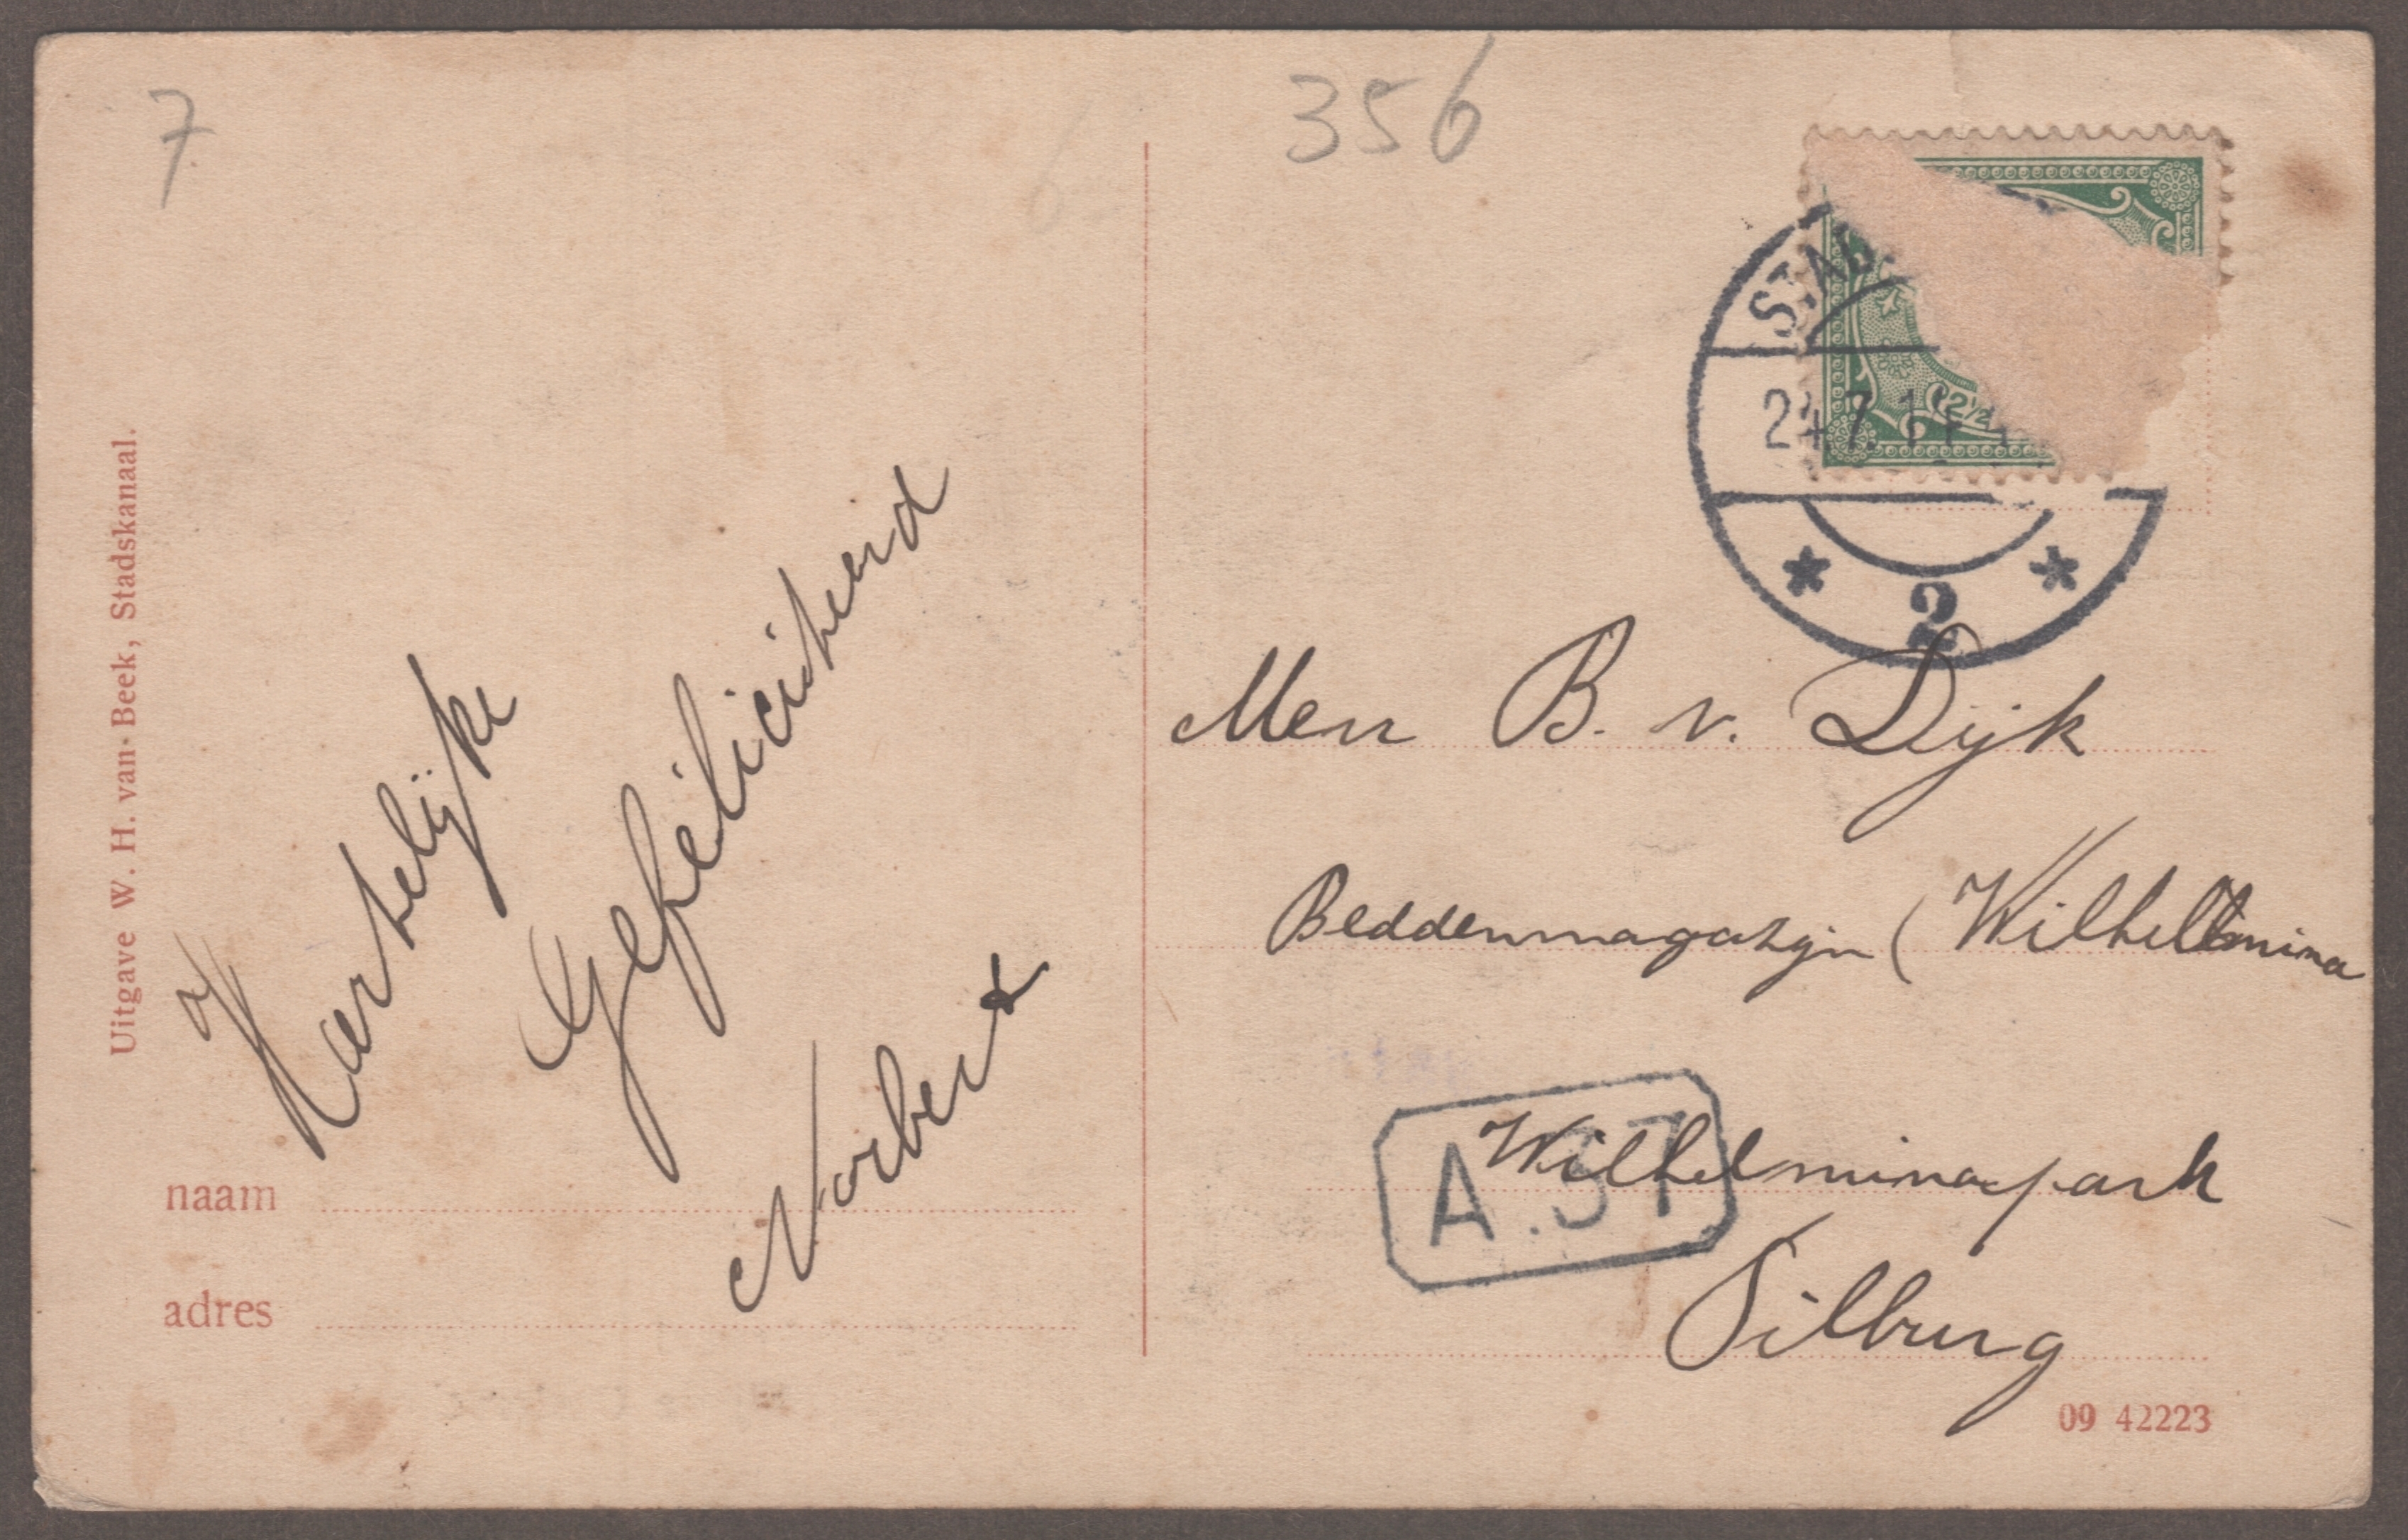 7
356
Uitgave W. H. van Beek, Stadskanaal.
STAD
24 7 11
2½
2
Hartelijke
Gefeliciteerd
Norbert
naam
adres
Men B. v. Dijk
Beddenmagazijn (Wilhelmina
Wilhelminapark
A. 37
Tilburg
09 42223